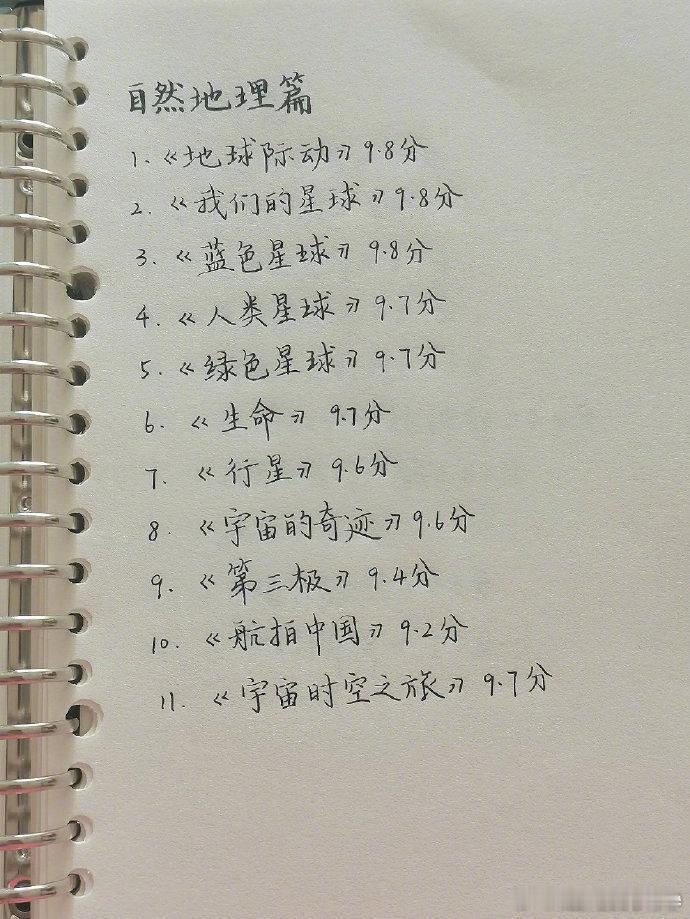 自然地理篇
1.《地球际动》9.8分
2.《我们的星球》9.8分
3.《蓝色星球》9.8分
4.《人类星球》9.7分
5.《绿色星球》9.7分
6.《生命》9.7分
7.《行星》9.6分
8.《宇宙的奇迹》9.6分
9.《第三极》9.4分
10.《航拍中国》9.2分
11.《宇宙时空之旅》9.7分